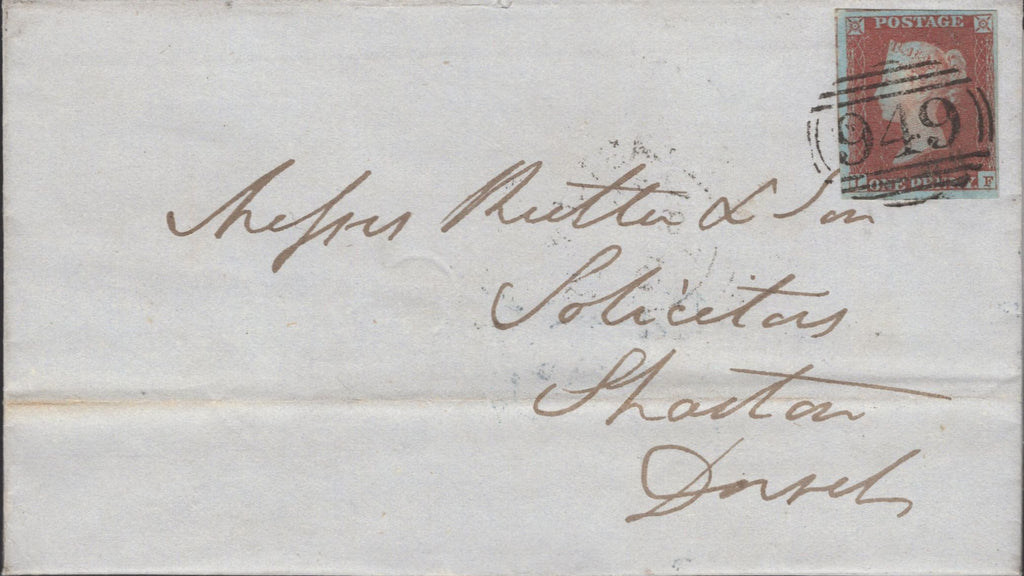 POSTAGE
949
ONE PENNY F
Messrs Rutter & Son
Solicitors
Shaston
Dorset